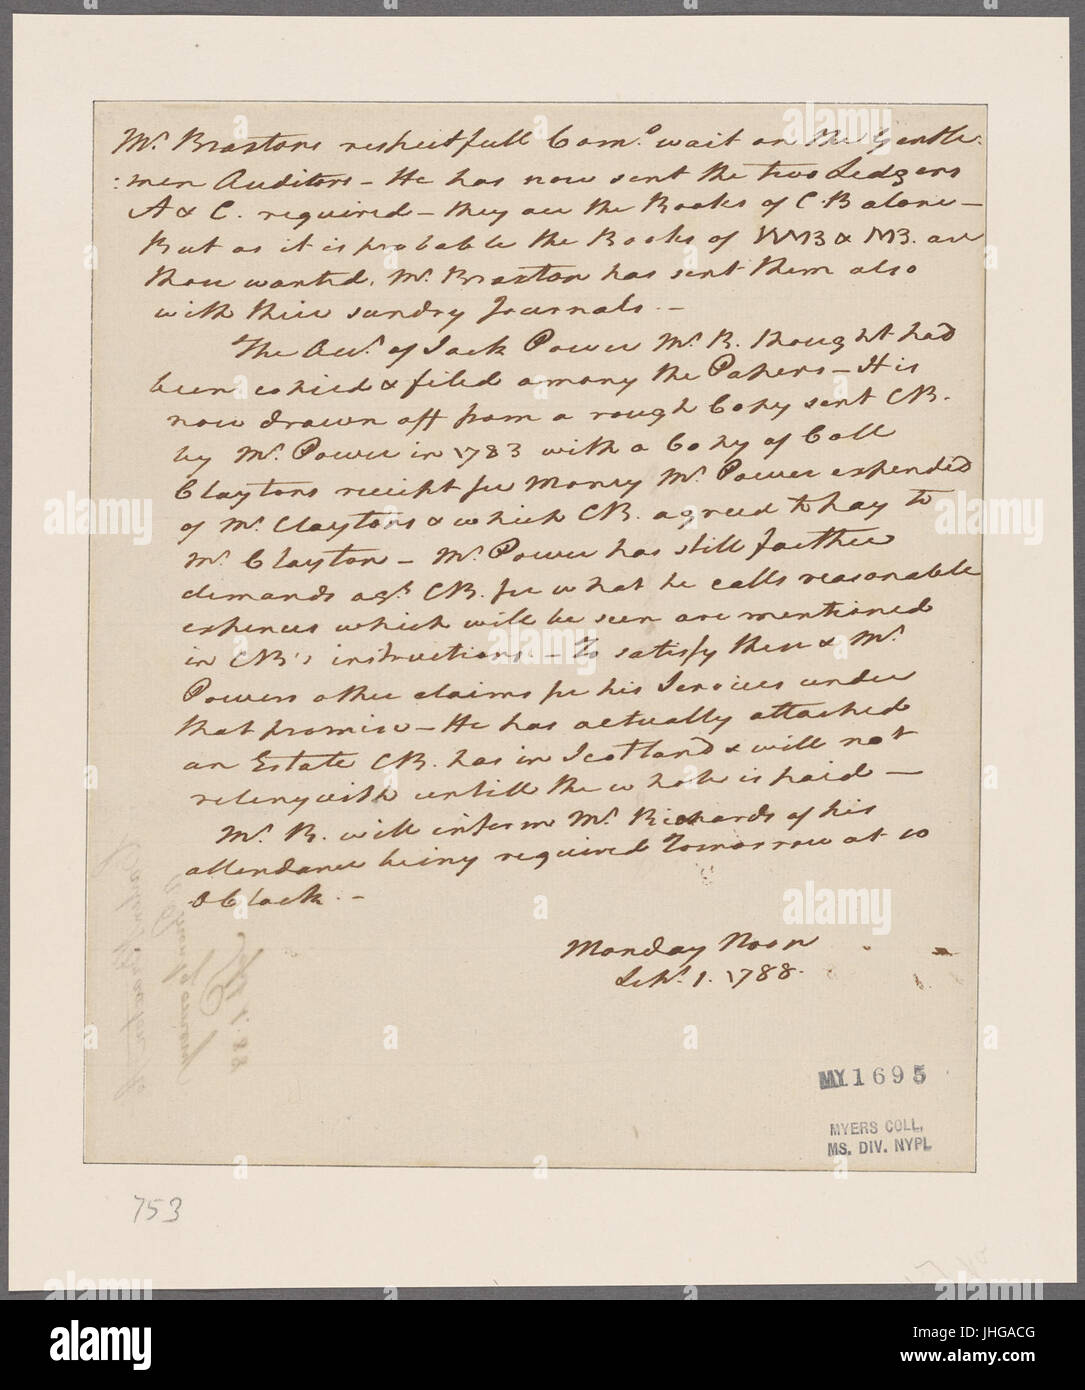 Mr. Braxtons respectfull Como. wait on the Gentle:
:men Auditors – He has now sent the two Ledgers
A & C. required – they are the Books of CB alone –
But as it is probable the Books of WMB & MB. are
those wanted, Mr. Braxton has sent them also
with their sundry Journals. –
The Acct. of Jack Power Mr. B. thought had
been copied & filed among the Papers – It is
now drawn off from a rough Copy sent CB.
by Mr. Power in 1783 with a Copy of Coll
Claytons receipt for Money Mr. Power expended
of Mr. Claytons & which CB. agreed to pay to
Mr Clayton – Mr. Power has still farther
demands agt. CB. for what he calls reasonable
expences which will be seen are mentioned
in CB's instructions. – To satisfy these & Mr.
Powers other claims for his Services under
that promise – He has actually attached
an Estate CB. has in Scotland & will not
relinquish untill the whole is paid –
Mr. B. will inform Mr. Richards of his
attendance being required Tomorrow at 10
O Clock. –
Monday Noon
Sepr. 1. 1788.
MY 1695
MYERS COLL,
MS. DIV. NYPL
753
alamy
Image ID: JHGACG
www.alamy.com